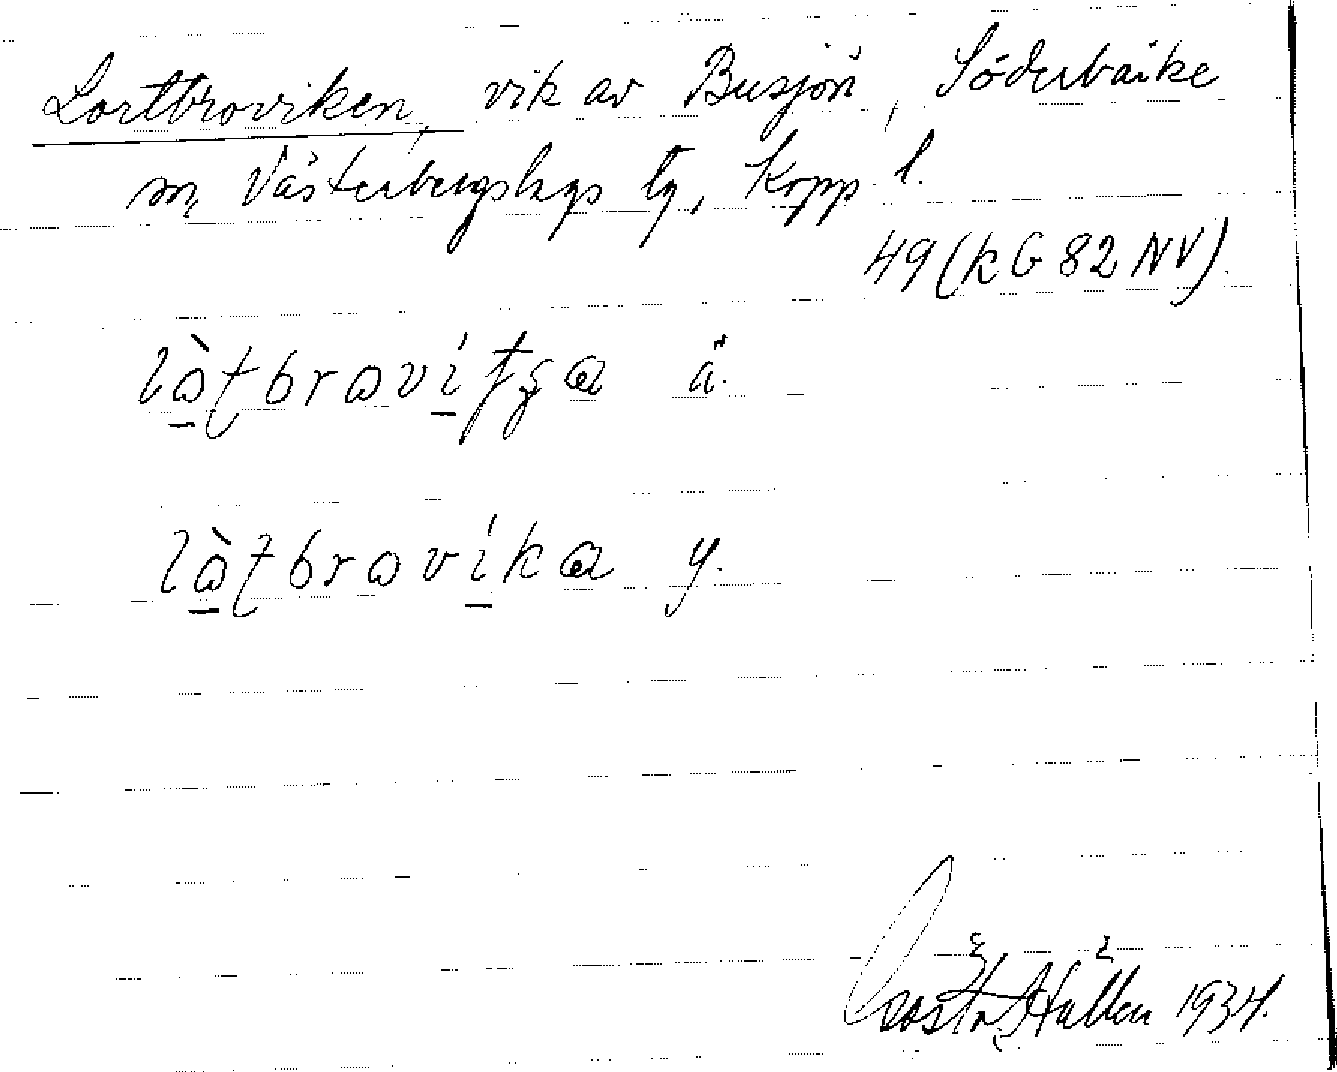 Lortbroviken, vik av Busjön, Söderbärke
sn, Västerbergslags tg, Kopp. l.
49 (k G 82 NV).
lòtbroviţga ä.
lòtbrovika y.
Gösta Hallén 1934.